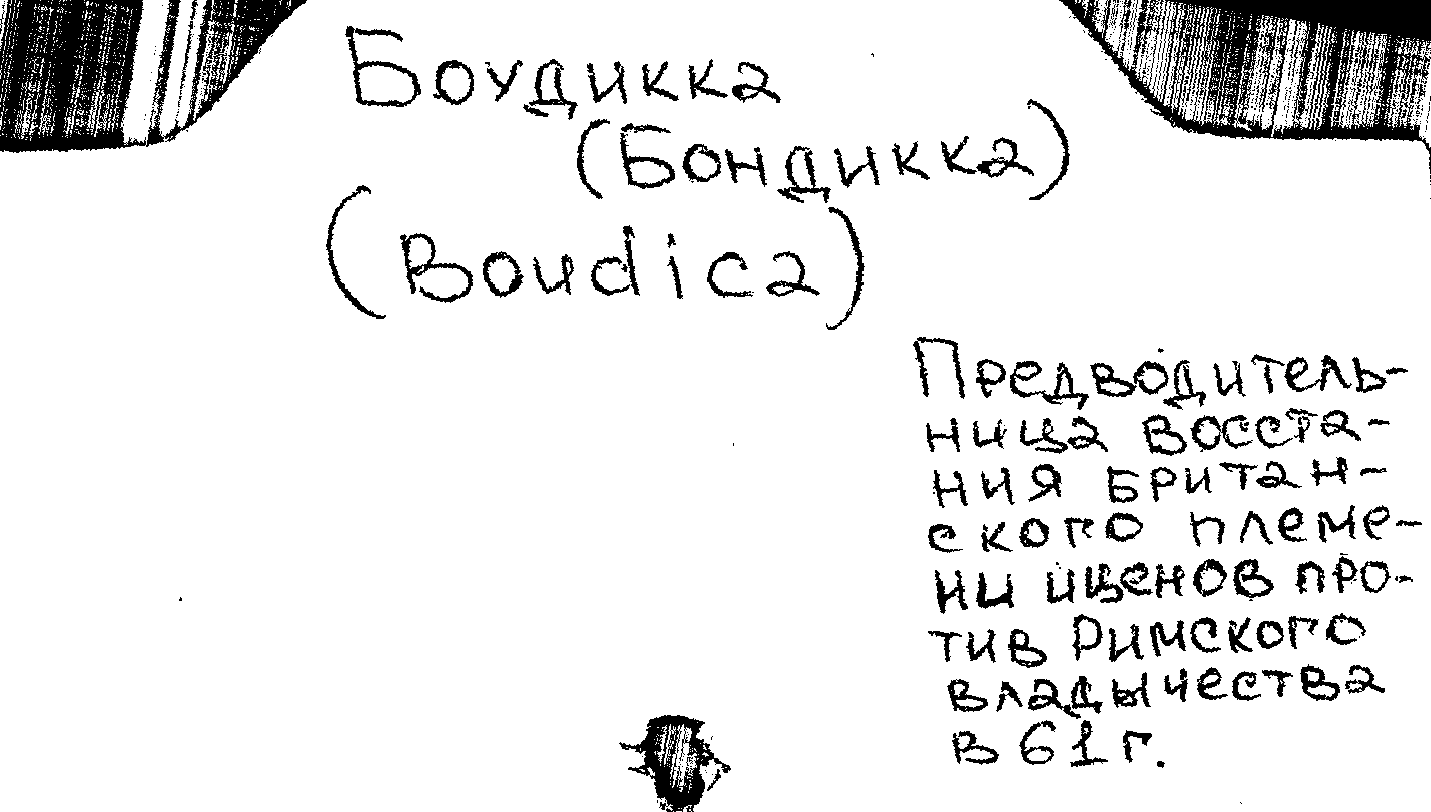 Боудикка
(Бондикка)
(Boudica)
Предводитель-
ница восста-
ния британ-
ского племе-
ни иценов про-
тив Римского
владычества
в 61 г.